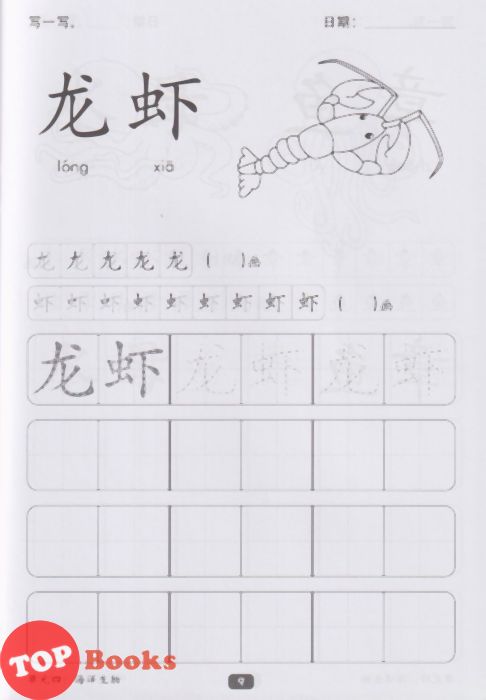 写一写。 日期：
龙虾
lóng xiā
龙 龙 龙 龙 龙 ( )画
虾 虾 虾 虾 虾 虾 虾 虾 虾 ( )画
龙 虾 龙 虾 龙 虾
海洋生物
9
TOP Books